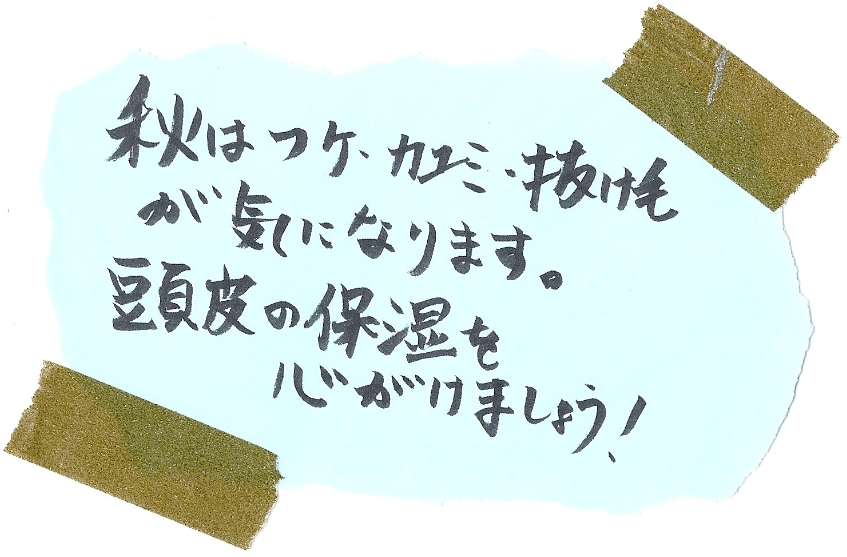 秋はフケ・カユミ・抜け毛
が気になります。
頭皮の保湿を
心がけましょう!